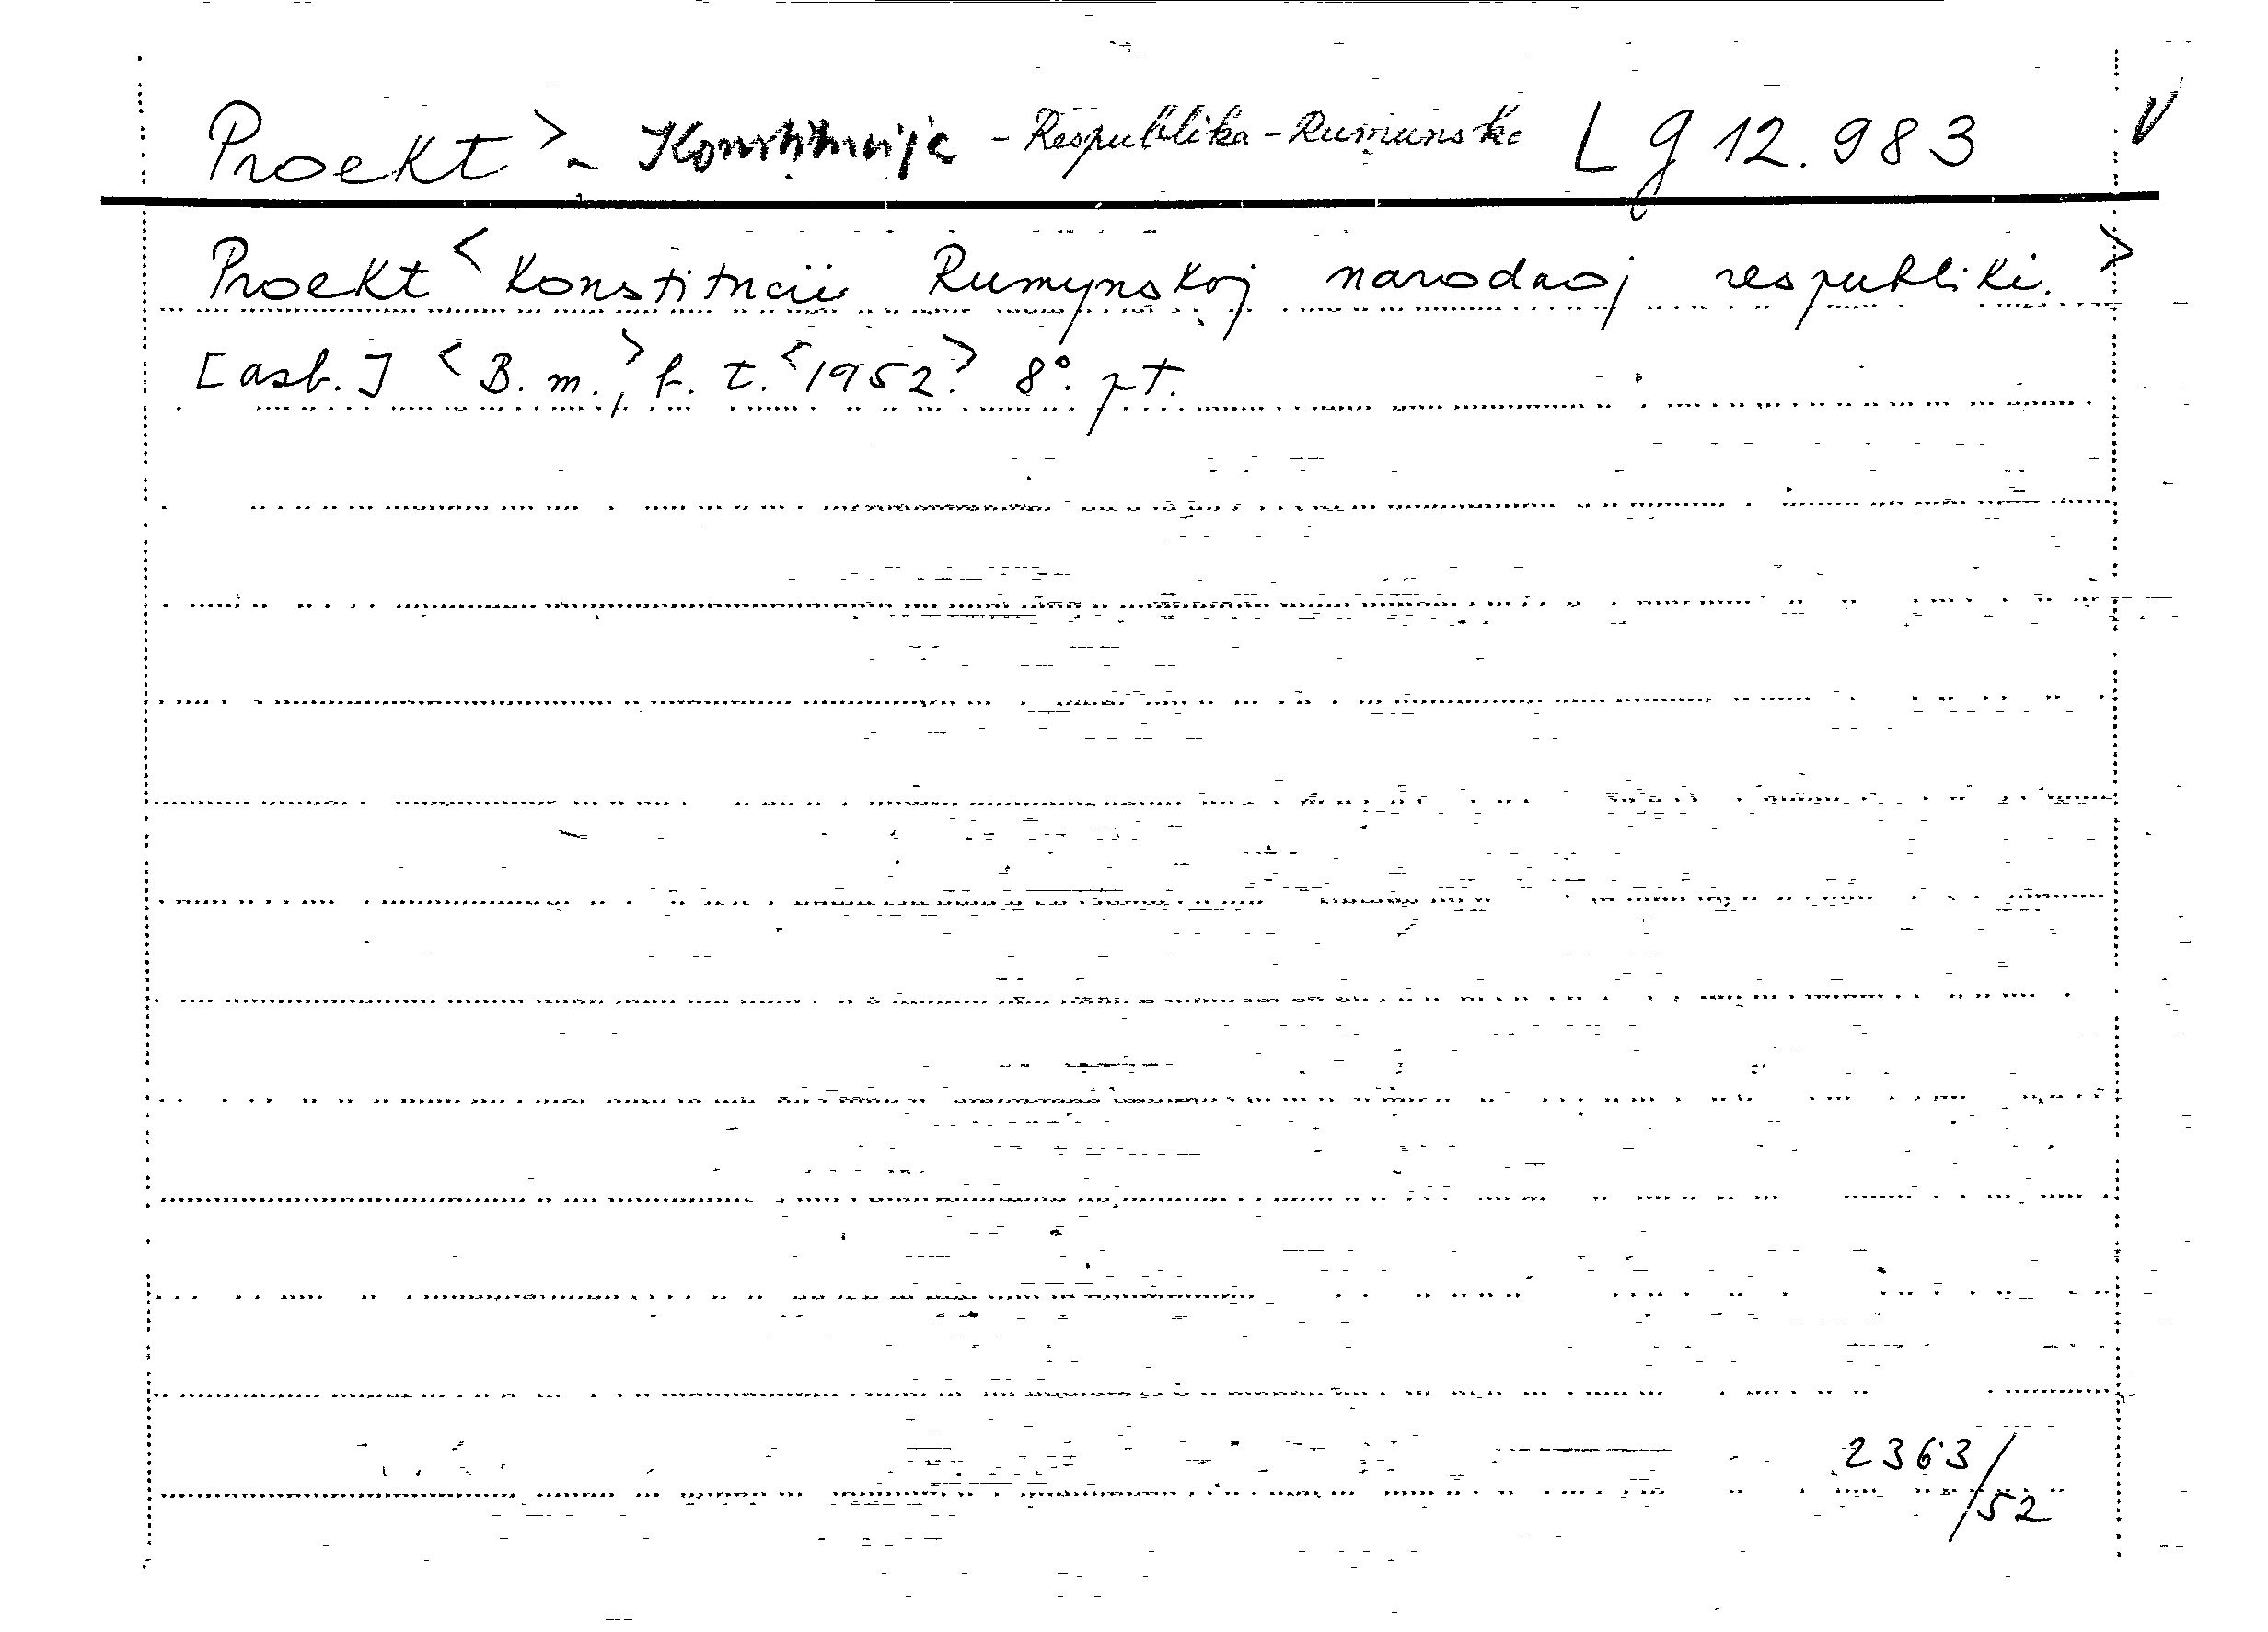 Proekt > - Konstitucija - Respublika - Rumunska Lg 12.983 V
Proekt < Konstitucii Rumynskoj narodnoj respubliki. >
[asb.] < B. m., > b. t. < 1952. > 8°. pt.
2363/52